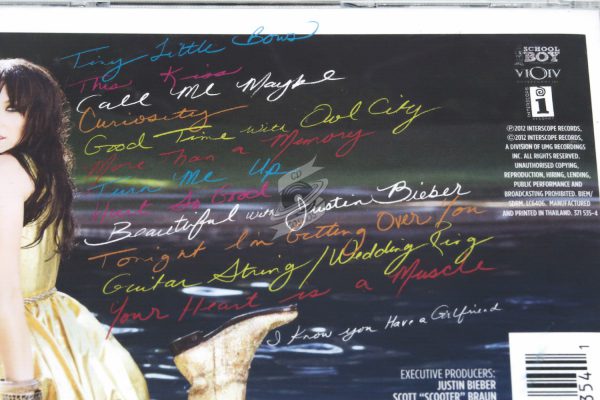 Tiny Little Bows
This Kiss
Call Me Maybe
Curiosity
Good Time with Owl City
More Than a Memory
Turn Me Up
Hurt So Good
Beautiful with Justin Bieber
Tonight I'm Getting Over You
Guitar String / Wedding Ring
Your Heart is a Muscle
I Know you Have a Girlfriend
SCHOOL
BOY
INTERSCOPE
i
℗2012 INTERSCOPE RECORDS,
©2012 INTERSCOPE RECORDS,
A DIVISION OF UMG RECORDINGS
INC. ALL RIGHTS RESERVED.
UNAUTHORISED COPYING,
REPRODUCTION, HIRING, LENDING,
PUBLIC PERFORMANCE AND
BROADCASTING PROHIBITED. BIEM/
SDRM. LC6406. MANUFACTURED
AND PRINTED IN THAILAND. 371 535-4
CD
EXECUTIVE PRODUCERS:
JUSTIN BIEBER
SCOTT "SCOOTER" BRAUN
3541